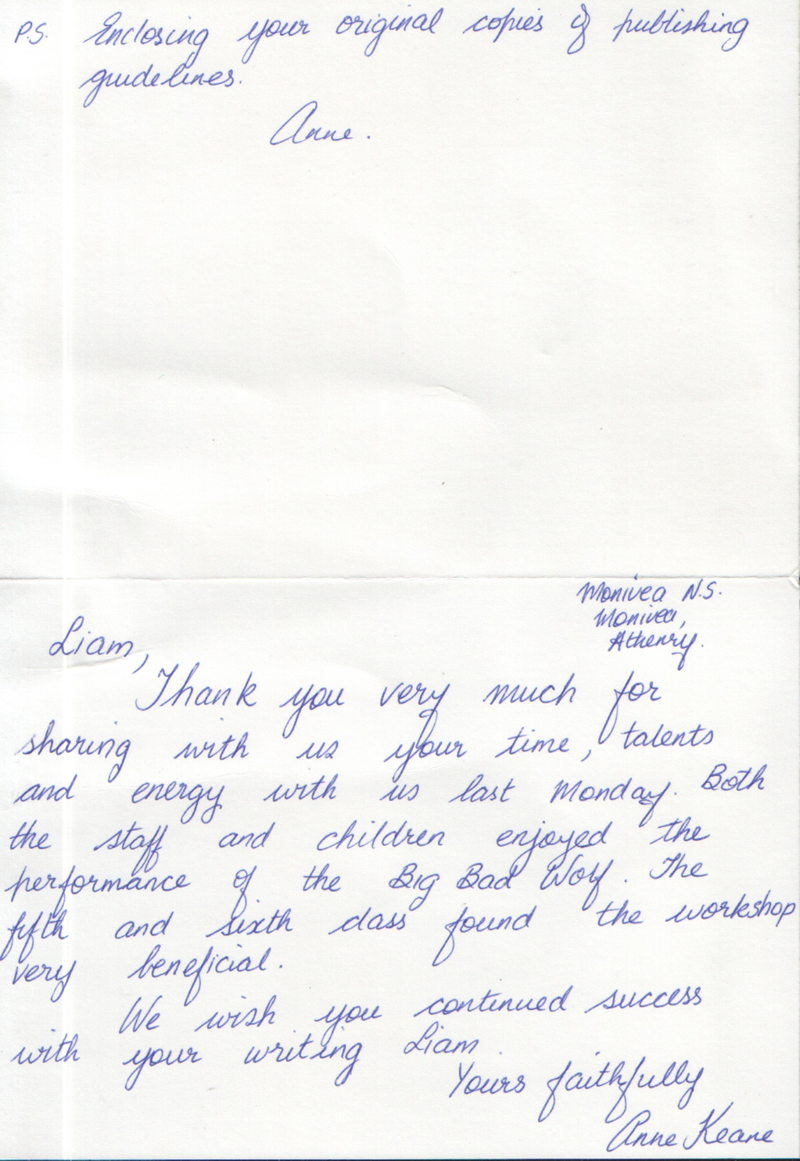 P.S. Enclosing your original copies of publishing
guidelines.
Anne.
Monivea N.S.
Monivea,
Athenry.
Liam,
Thank you very much for
sharing with us your time, talents
and energy with us last Monday. Both
the staff and children enjoyed the
performance of the Big Bad Wolf. The
fifth and sixth class found the workshop
very beneficial.
We wish you continued success
with your writing Liam.
Yours faithfully
Anne Keane